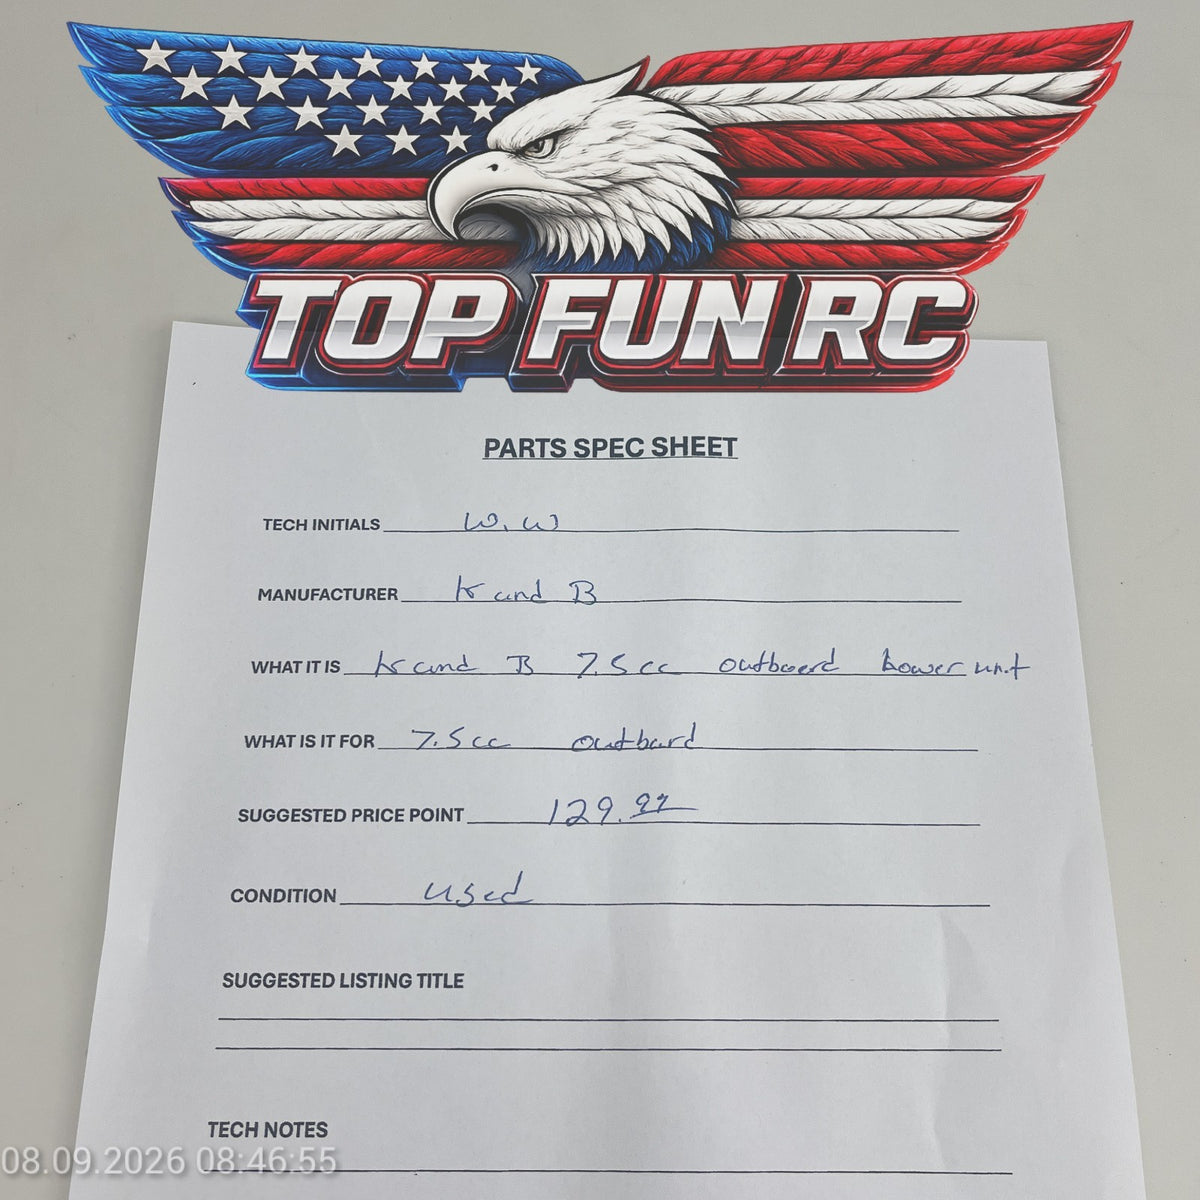 TOP FUN RC
PARTS SPEC SHEET
TECH INITIALS W. W
MANUFACTURER K and B
WHAT IT IS K and B 7.5cc outboard Lower unit
WHAT IS IT FOR 7.5cc outboard
SUGGESTED PRICE POINT 129.99
CONDITION used
SUGGESTED LISTING TITLE
TECH NOTES
08.09.2026 08:46:55